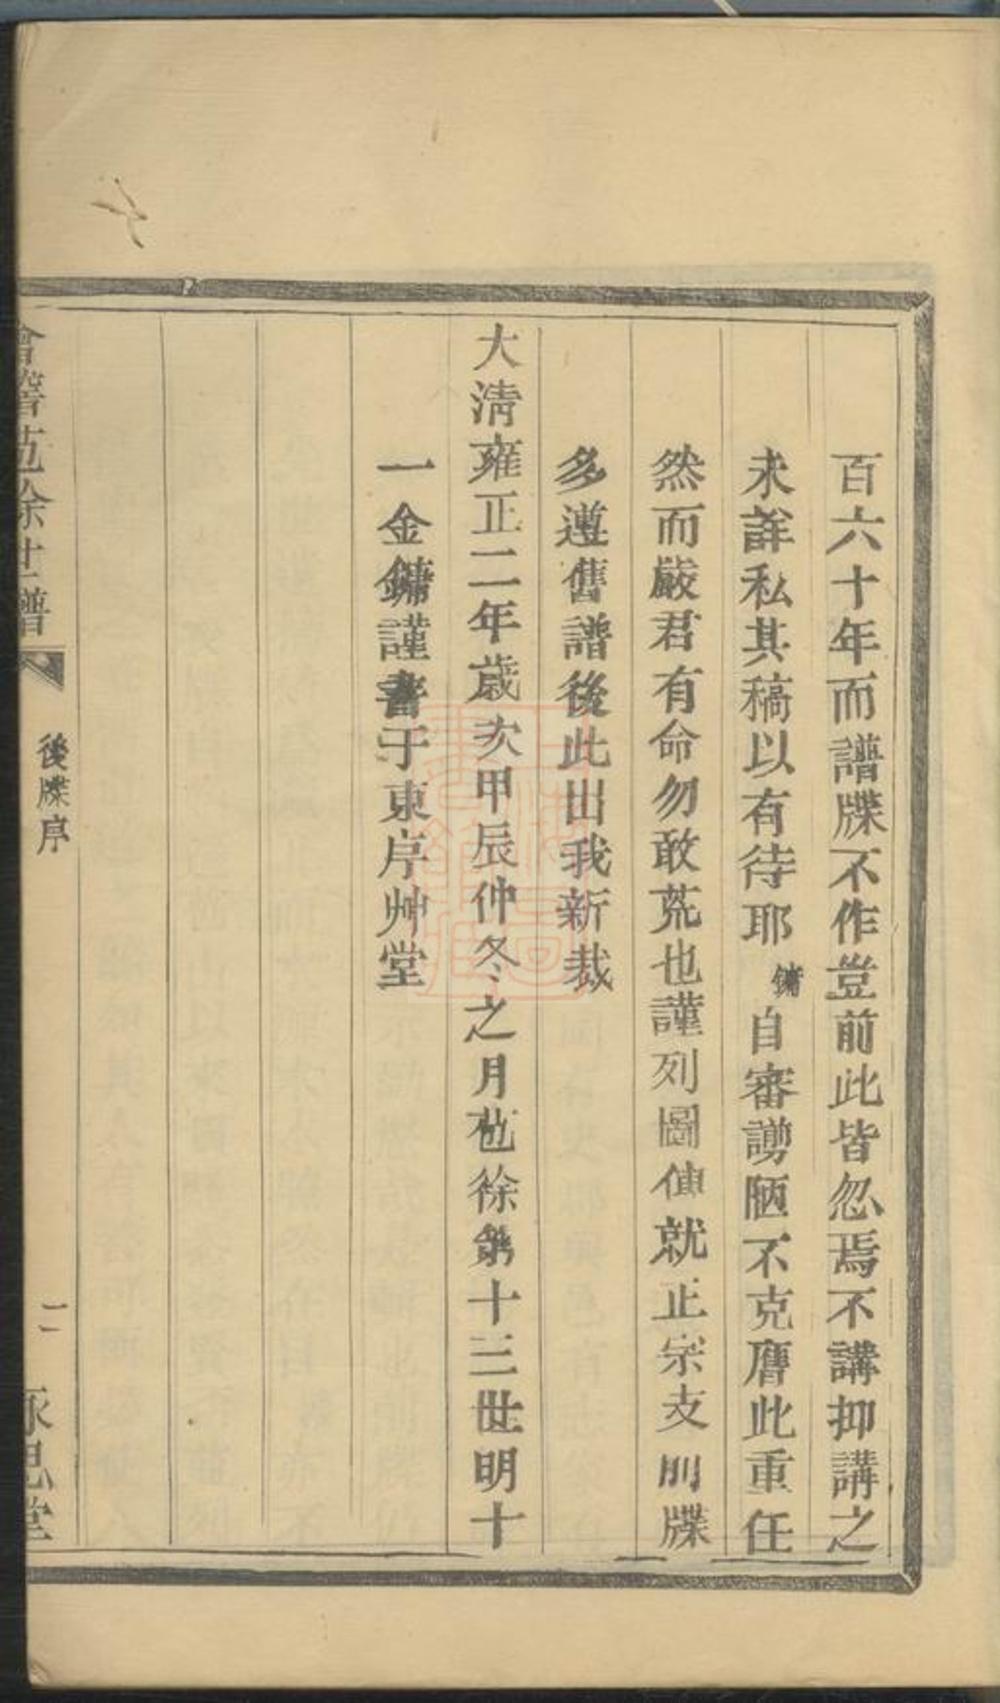 百六十年而譜牒不作豈前此皆忽焉不講抑講之
未詳私其稿以有待耶鏞自審謭陋不克膺此重任
然而嚴君有命勿敢荒也謹列圖傳就正宗支則牒
多遵舊譜後此出我新裁
大清雍正二年歲次甲辰仲冬之月苞徐第十三世明十
一金鏞謹書于東序艸堂
會稽苞徐世譜
後牒序
二
永思堂